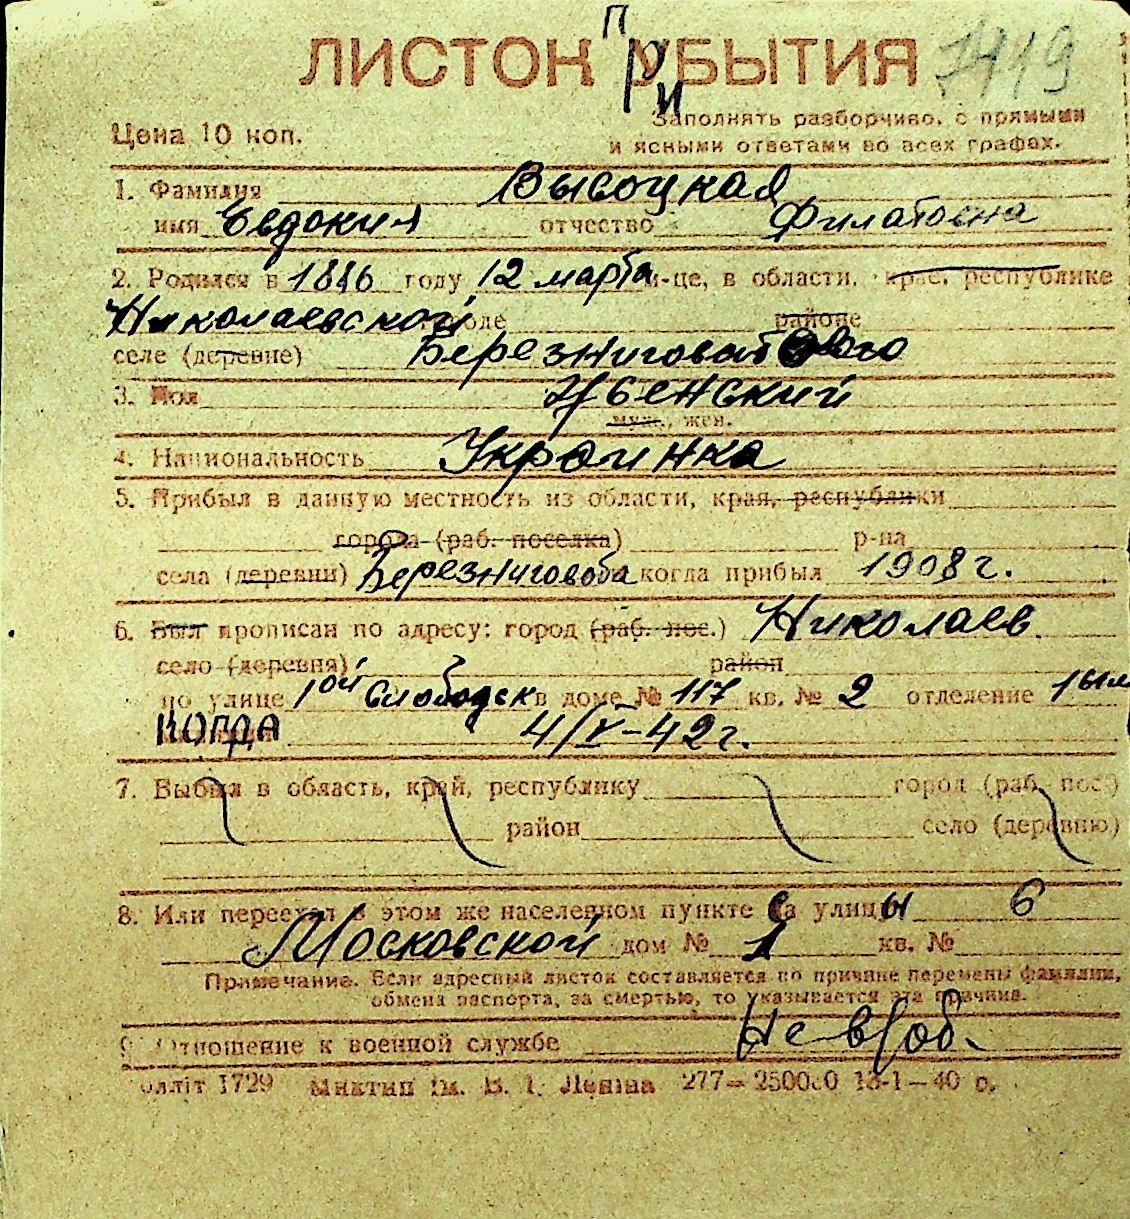 ЛИСТОК УБЫТИЯ 7419
ПРИ
Цена 10 коп.
Заполнять разборчиво, с прямыми
и ясными ответами во всех графах.
1. Фамилия Высоцкая
имя Евдокия отчество Филатовна
2. Родился в 1886 году 12 марта м-це, в области, крае, республике
Николаевской городе районе
селе (деревне) Березниговатового
3. Пол Женский
муж., жен.
4. Национальность Украинка
5. Прибыл в данную местность из области, края, республики
города (раб. поселка) р-на
села (деревни) Березниговоба когда прибыл 1908 г.
6. Был прописан по адресу: город (раб. пос.) Николаев.
село (деревня) район
по улице 1ой Слободск в доме № 117 кв. № 2 отделение 1
КОГДА 4/V-42 г.
7. Выбыл в область, край, республику город (раб. пос.)
район село (деревню)
8. Или переехал в этом же населенном пункте с улицы 6
Московской дом № 1 кв. №
Примечание. Если адресный листок составляется по причине перемены фамилии,
обмена паспорта, за смертью, то указывается эта причина.
9. Отношение к военной службе Не в/об.
1729 Миктип ім. В. І. Леніна 277—250000 13-1—40 р.